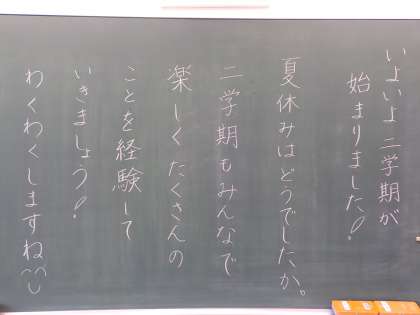 いよいよ二学期が
始まりました！
夏休みはどうでしたか。
二学期もみんなで
楽しくたくさんの
ことを経験して
いきましょう！
わくわくしますね^^